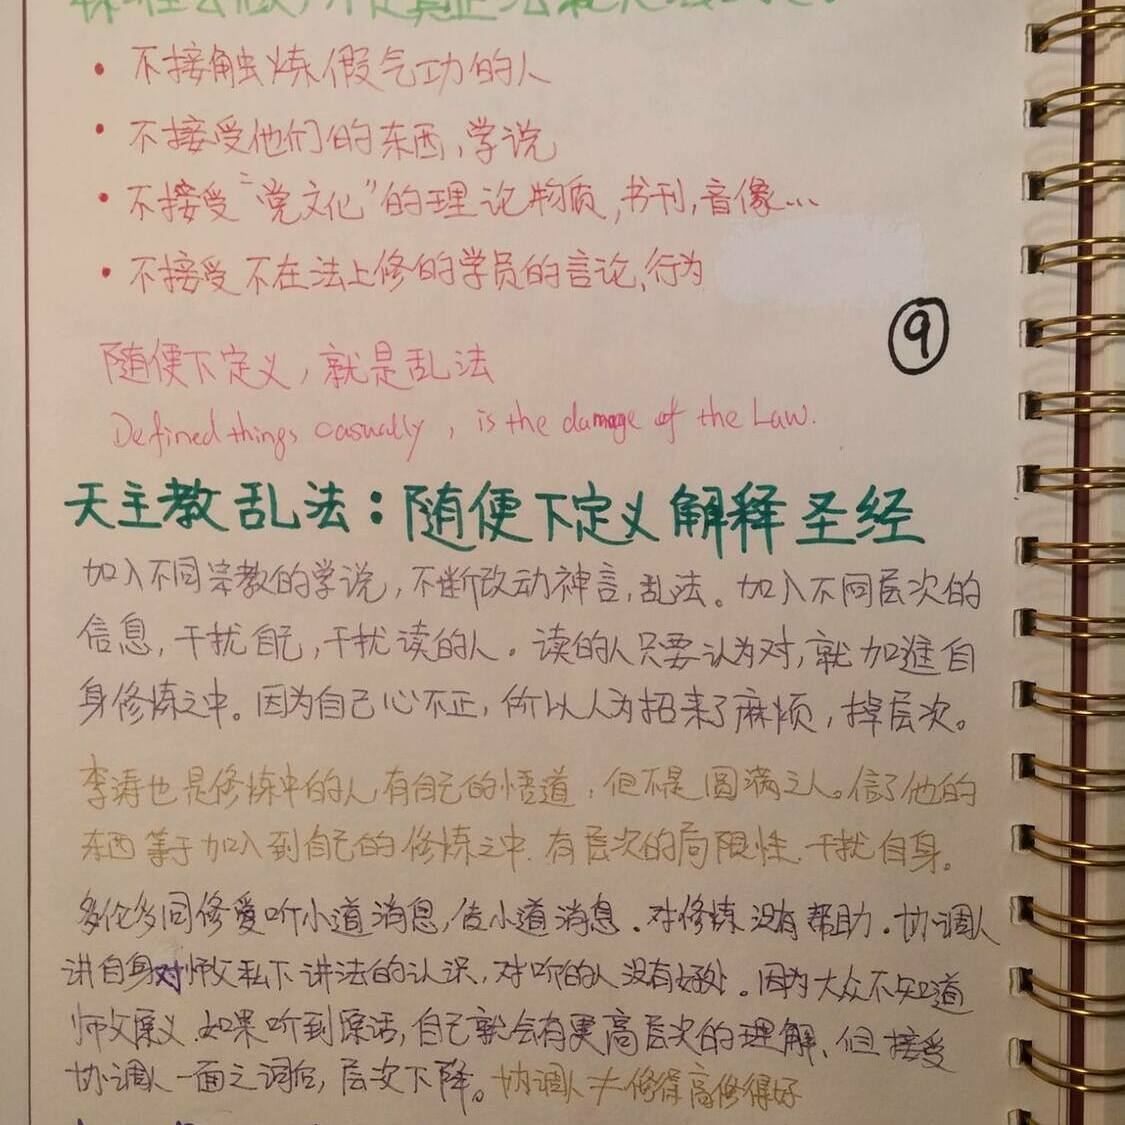 • 不接触炼假气功的人
• 不接受他们的东西,学说
• 不接受"党文化"的理论物质,书刊,音像...
• 不接受不在法上修的学员的言论,行为
9
随便下定义,就是乱法
Defined things casually, is the damage of the Law.
天主教乱法:随便下定义解释圣经
加入不同宗教的学说,不断改动神言,乱法。加入不同层次的
信息,干扰自己,干扰读的人。读的人只要认为对,就加進自
身修炼之中。因为自己心不正,所以人为招来了麻烦,掉层次。
李涛也是修炼中的人,有自己的悟道,但不是圆满之人。信了他的
东西等于加入到自己的修炼之中.有层次的局限性.干扰自身。
多伦多同修爱听小道消息,传小道消息.对修炼没有帮助.协调人
讲自身对师父私下讲法的认识,对听的人没有好处。因为大众不知道
师父原义.如果听到原话,自己就会有更高层次的理解,但接受
协调人一面之词后,层次下降。协调人≠修得高修得好